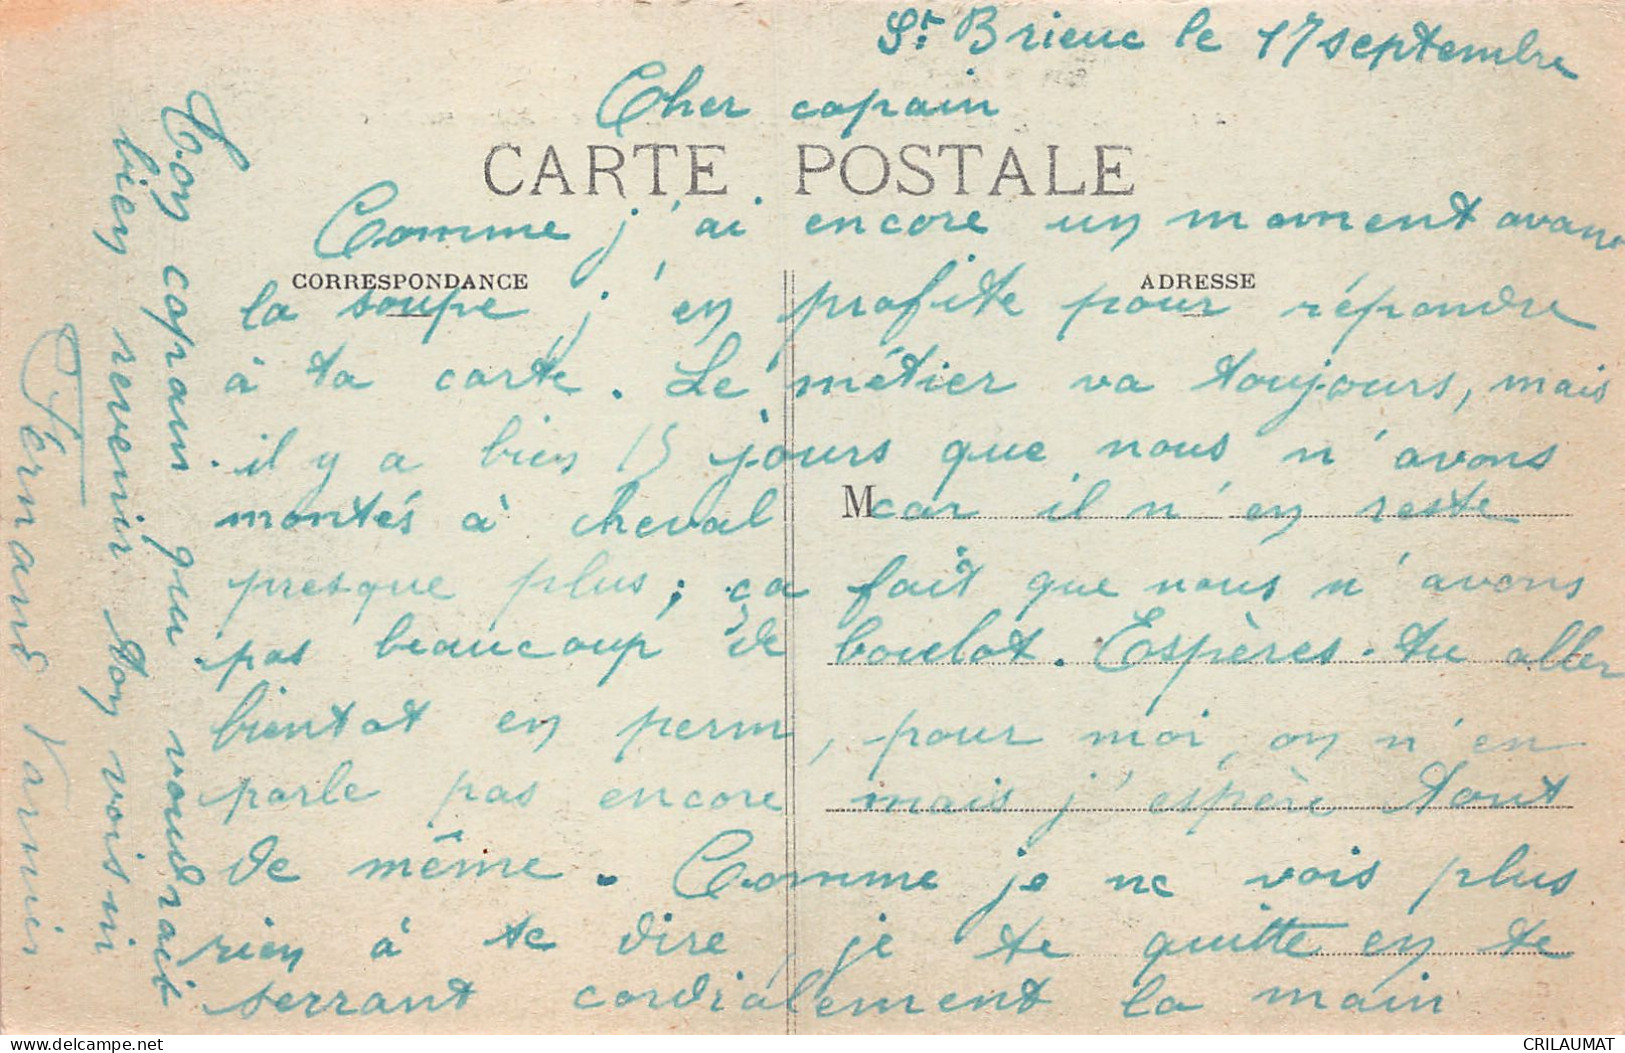 St Brieuc le 17 septembre
Cher copain
CARTE POSTALE
Comme j'ai encore un moment avant
CORRESPONDANCE
ADRESSE
la soupe j'en profite pour répondre
à ta carte. Le métier va toujours, mais
il y a bien 15 jours que nous n'avons
M
montés à cheval car il n'en reste
presque plus; ça fait que nous n'avons
pas beaucoup de boulot. Espères-tu aller
bientot en perm, pour moi, on n'en
parle pas encore mais j'espère tout
de même. Comme je ne vois plus
rien à te dire je te quitte en te
serrant cordialement la main
Ton copain qui voudrait
bien revenir ton voisin
Fernand
delcampe.net
CRILAUMAT